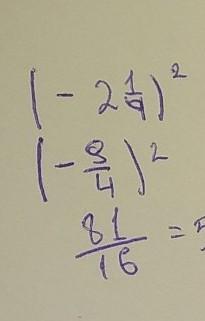 (- 2 1/4)²
(- 9/4)²
81/16 =